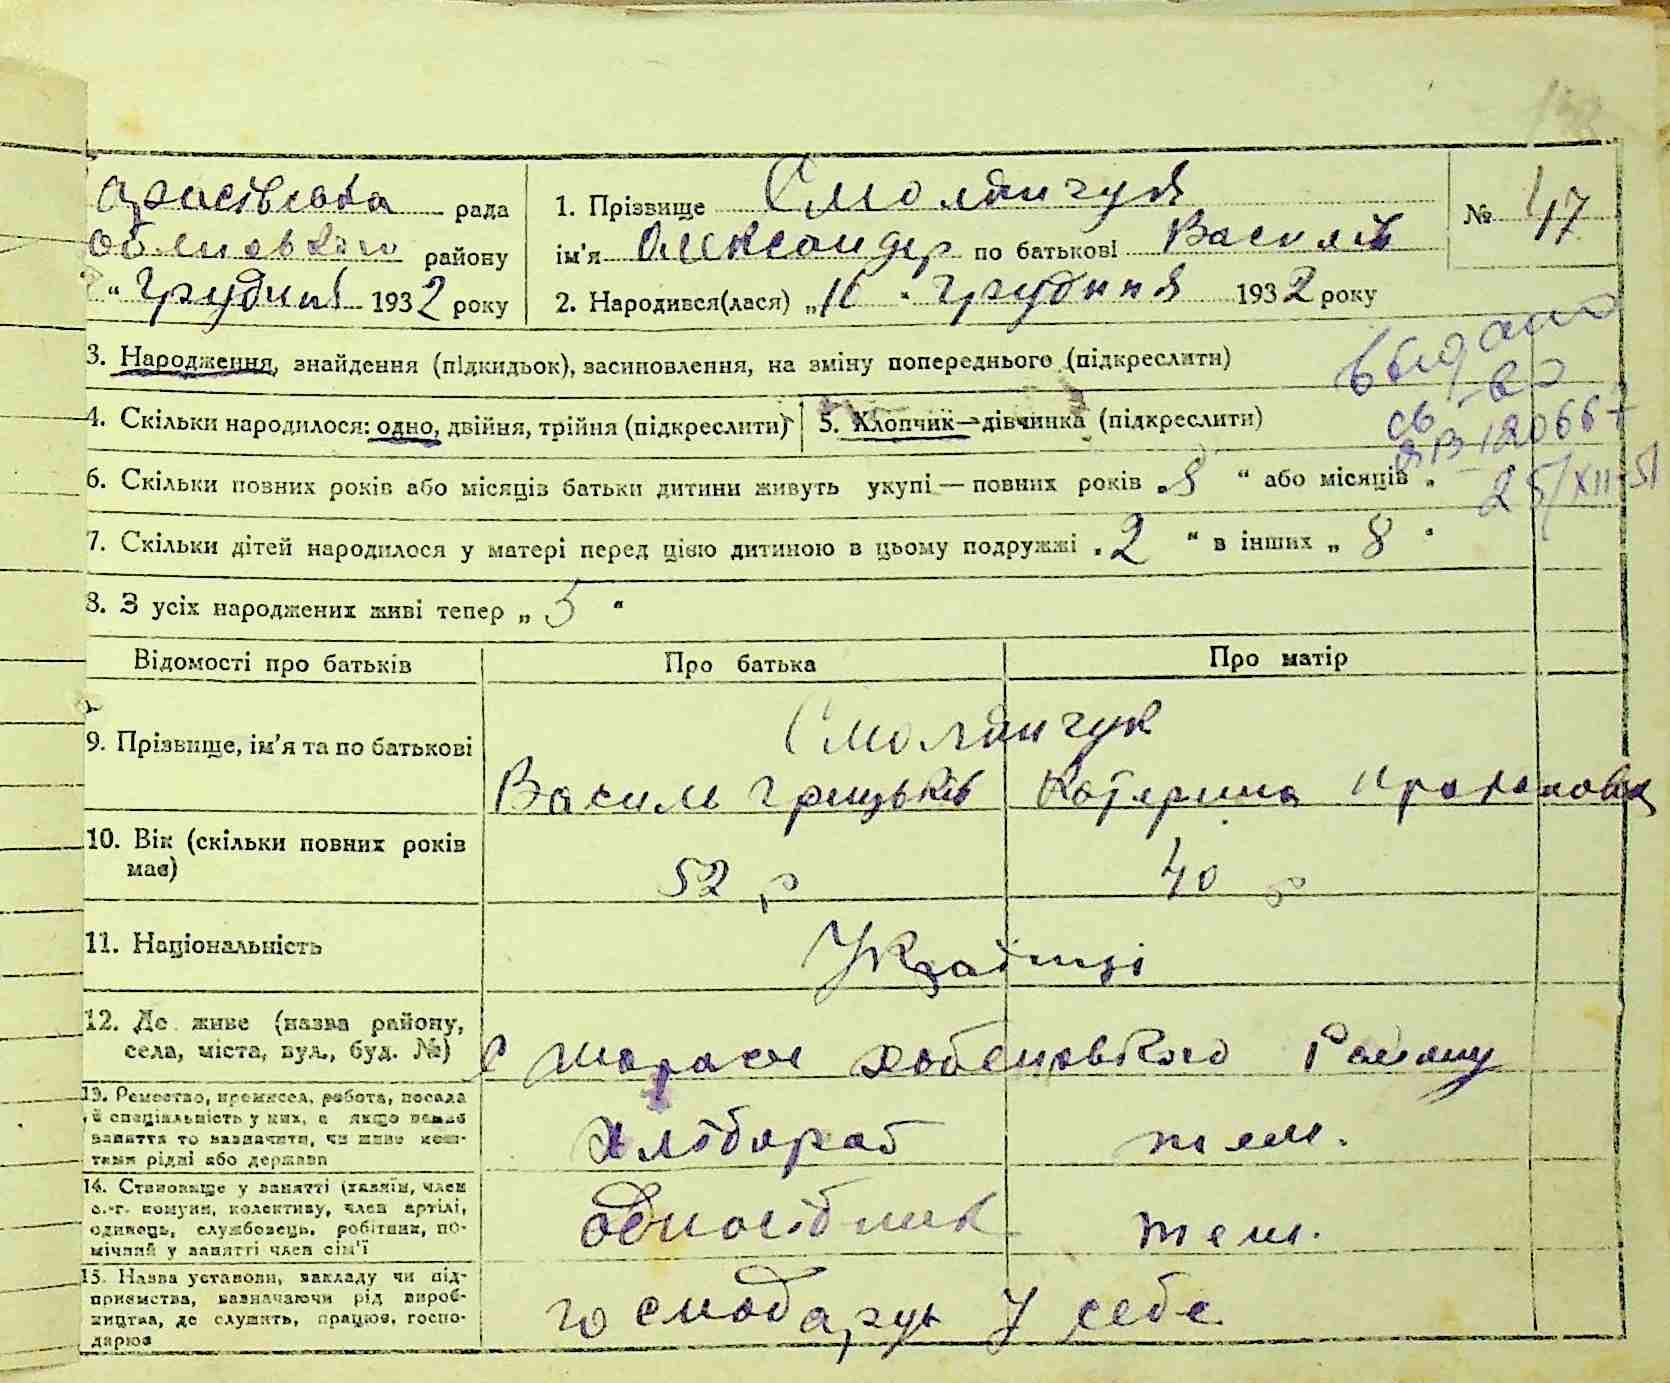 рада
1. Прізвище Смолянчук
№ 47
району
ім'я Олександер по батькові Василів
“ Грудня 1932 року
2. Народився(лася) „10 “ Грудня 1932 року
3. Народження, знайдення (підкидьок), засиновлення, на зміну попереднього (підкреслити)
4. Скільки народилося: одно, двійня, трійня (підкреслити)
5. Хлопчик — дівчинка (підкреслити)
видано
св-во
120667
25/XII-51
6. Скільки повних років або місяців батьки дитини живуть укупі — повних років „8 “ або місяців „
7. Скільки дітей народилося у матері перед цією дитиною в цьому подружжі „2 “ в інших „ 8 “
8. З усіх народжених живі тепер „ 5 “
Відомості про батьків
Про батька
Про матір
9. Прізвище, ім'я та по батькові
Смолянчук
Василь Грицьків
Катерина
10. Вік (скільки повних років має)
52 р
40 р
11. Національність
Українці
12. Де живе (назва району, села, міста, вул., буд. №)
с району
13. Ремество, промисел, робота, посада й спеціальність у них, а якщо немає заняття то зазначити, чи живе кош- тами рідні або держави
Хлібороб
теж.
14. Становище у занятті (хазяїн, член с.-г. комуни, колективу, член артілі, одинець, службовець, робітник, по- мічний у занятті член сім'ї
одноосібник
теж.
15. Назва установи, закладу чи під- приємства, зазначаючи рід вироб- ництва, де служить, працює, госпо- дарює
господарує у себе